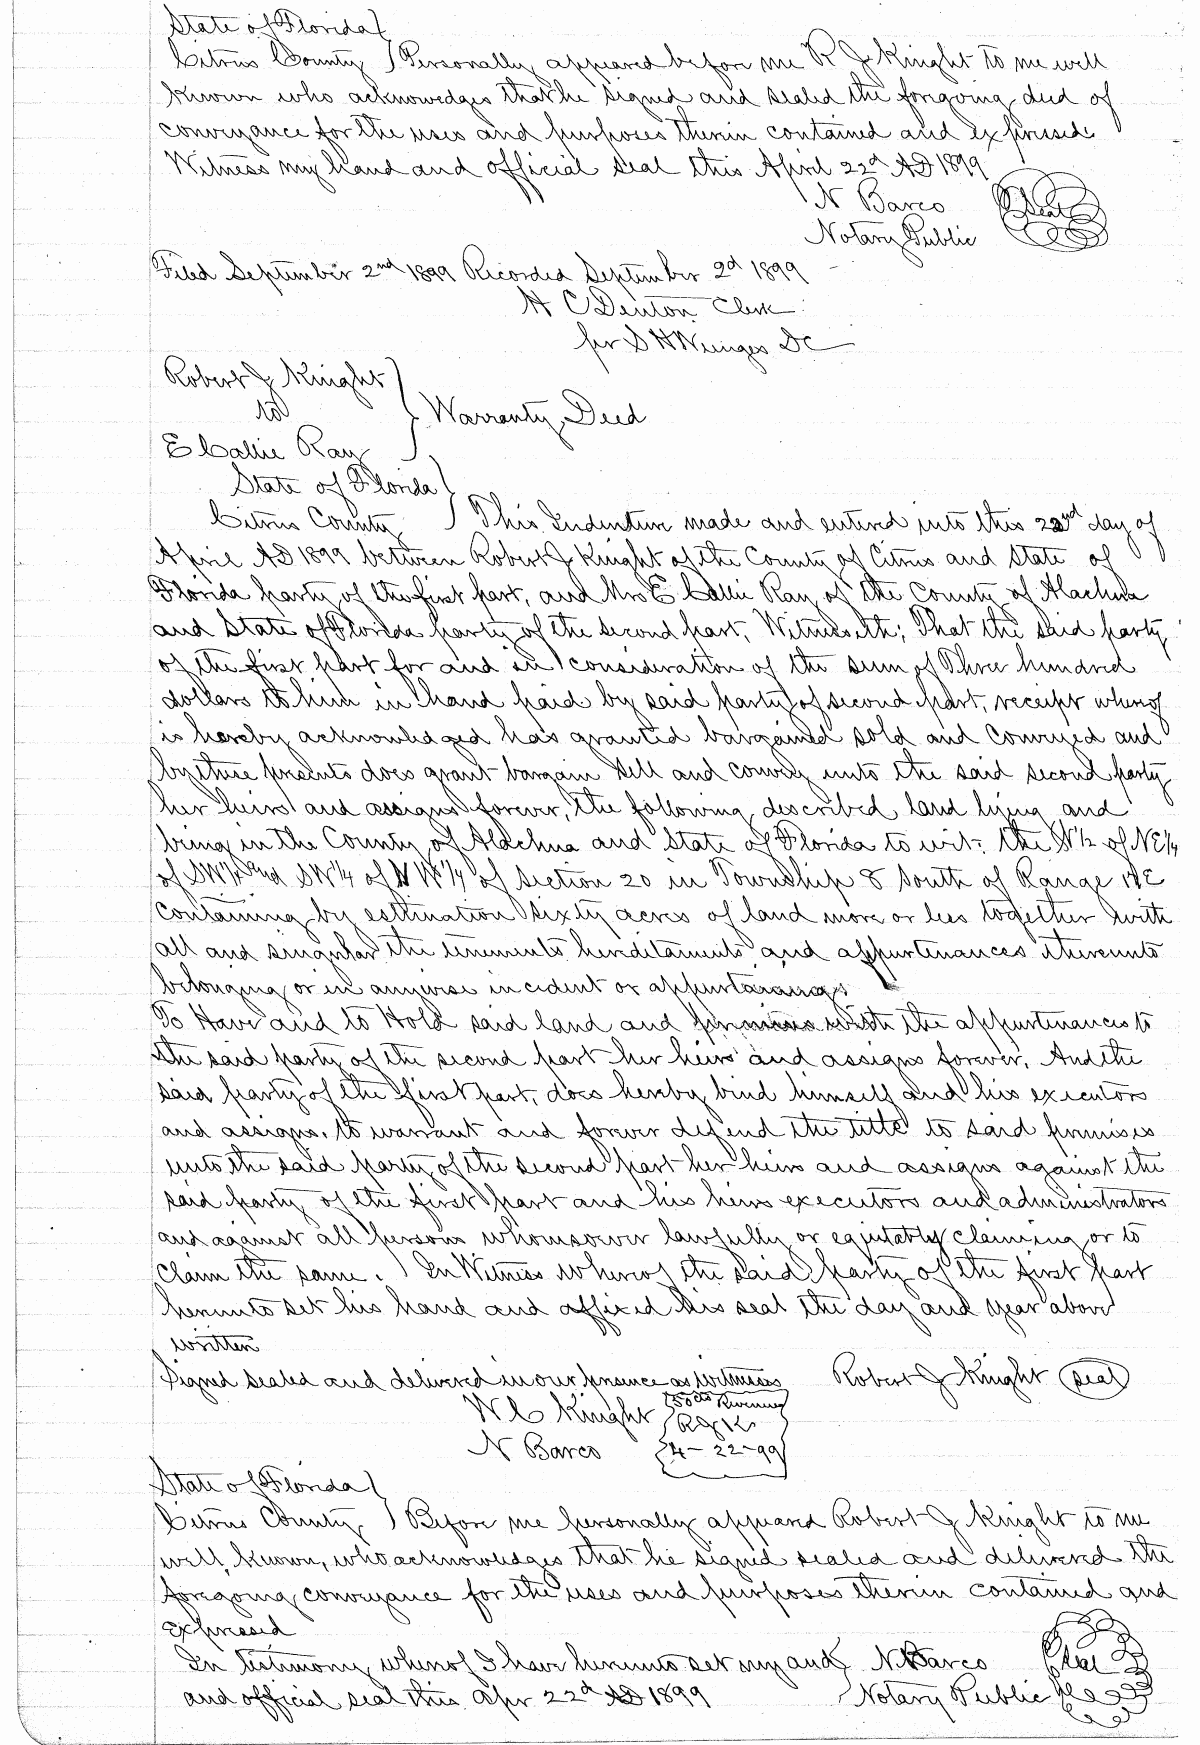 State of Florida }
Citrus County } Personally appeared before me R J Knight to me well
known who acknowedges that he signed and sealed the forgoing deed of
conveyance for the uses and purposes therein contained and expressed
Witness my hand and official seal this April 22d AD 1899
N Barco Seal
Notary Public
Filed September 2nd 1899 Recorded September 2d 1899
H C Denton Clerk
per S H DC
Robert J Knight }
to } Warranty Deed
E Callie Ray }
State of Florida }
Citrus County } This Indenture made and entered into this 22nd day of
April AD 1899 between Robert J Knight of the County of Citrus and State of
Florida party of the first part, and Mrs E Callie Ray of the County of Alachua
and State of Florida party of the second part, Witnesseth; That the said party
of the first part for and in consideration of the sum of Three hundred
dollars to him in hand paid by said party of second part, receipt whereof
is hereby acknowledged has granted bargained sold and conveyed and
by these presents does grant bargain sell and convey unto the said second party
her heirs and assigns forever, the following described land lying and
being in the County of Alachua and State of Florida to wit: the ½ of NE¼
of SW¼ and SW¼ of ¼ of Section 20 in Township 8 South of Range E
containing by esttimation sixty acres of land more or less together with
all and singular the tenements hereditaments and appurtenances thereunto
belonging or in anywise incident or appurtaining
To Have and to Hold said land and premises with the appurtenances to
the said party of the second part her heirs and assigns forever. And the
said party of the first part, does hereby bind himself and his executors
and assigns, to warrant and forever defend the title to said premises
unto the said party of the second part her heirs and assigns against the
said party of the first part and his heirs executors and administrators
and against all persons whomsoever lawfully or equitably claiming or to
claim the same. In Witness Whereof the said party of the first part
hereunto set his hand and affixed his seal the day and year above
written
Signed sealed and delivered in our presence as witness Robert J Knight seal
W C Knight 50cts Revenue
N Barco R J K
4-22-99
State of Florida }
Citrus County } Before me personally appeared Robert J Knight to me
well known, who acknowledges that he signed sealed and delivered the
foregoing conveyance for the uses and purposes therein contained and
expressed
In testimony whereof I have hereunto set my and N Barco Seal
and official seal this Apr 22d AD 1899 Notary Public